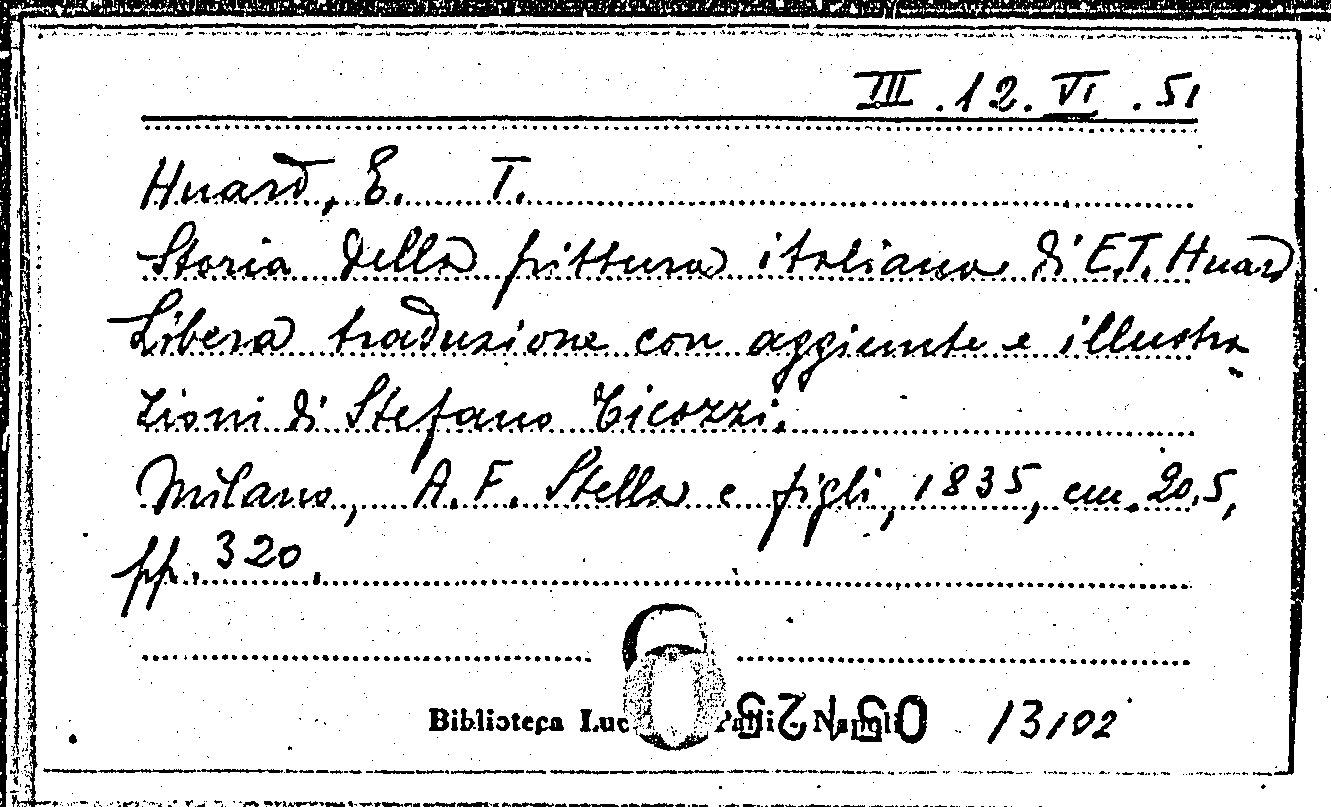 III.12.VI.51
Huard, E. T.
Storia della pittura italiana di E.T. Huard
Libera traduzione con aggiunte e illustra
zioni di Stefano Ticozzi.
Milano, A. F. Stella e figli, 1835, cm. 20,5,
pp. 320.
Biblioteca Napoli 13102